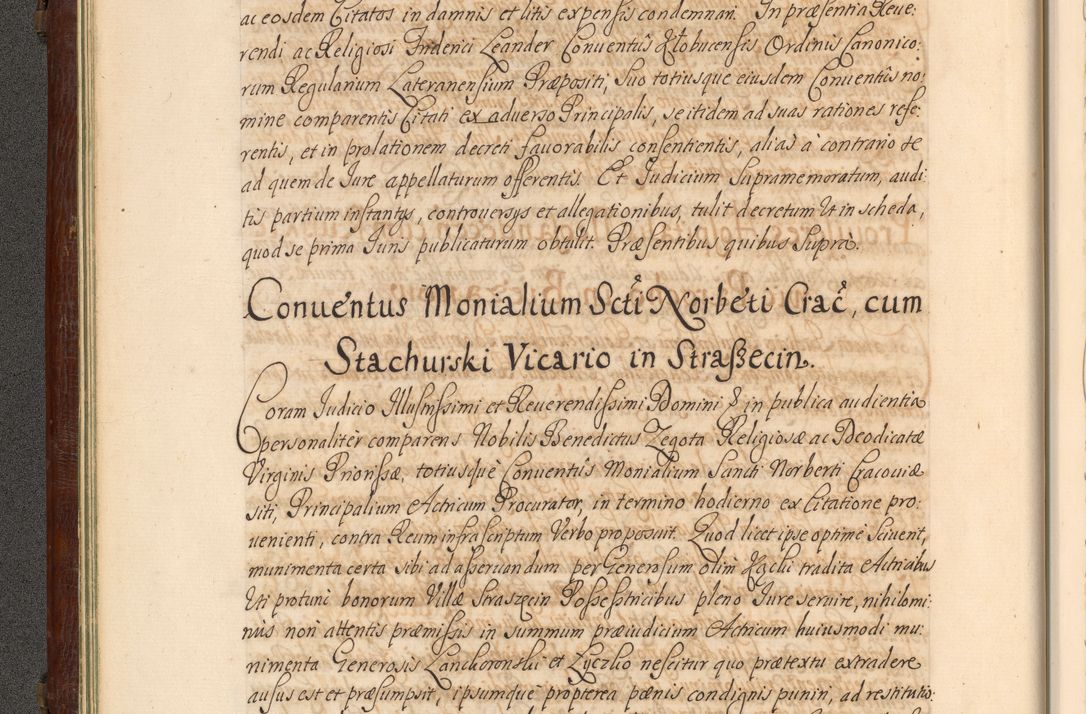 ac eosdem Citatos in damnis et litis expensis condemnari. In præsentia Reue:
rendi ac Religiosi Inderici Leander Conuentûs Kłobucensis Ordinis Canonico:
rum Regularium Lateranensium Præpositi, Suo totiusque eiusdem Conuentûs no:
mine comparentis Citati ex adverso Principalis, se itidem ad suas rationes refe:
rentis, et in prolationem decreti fauorabilis consentientis, alias à contrario te
ad quem de Jure appellaturum offerentis. Et Judicium Supramemoratum, audi:
tis partium instantijs, controuersys et allegationibus, tulit decretum Ut in scheda,
quod se prima Juris publicaturum obtulit. Præsentibus quibus Suprà.
Conuentus Monialium Scti Norbeti Crac, cum
Stachurski Vicario in Straßecin.
Coram Judicio Illustrissimi et Reuerendissimi Domini in publica audientia
personalitèr comparens Nobilis Benedictus Zegota Religiosæ ac Deodicatæ
Virginis Priorissæ, totiusquè Conuentûs Monialium Sancti Norberti Cracouiæ
siti, Principalium Actricum Procurator, in termino hodierno ex Citatione pro:
uenienti, contra Reum infrascriptum Verbo proposuit. Quod licet ipse optimè Sciuent,
munimenta certa sibi ad asseruandum per Generosum olim tradita Actricibus
Uti protunc bonorum Villæ Straszęcin Possesstricibus pleno Jure seruire, nihilomi:
nus non attentis præmissis in summum præiudicium Actricum huiusmodi mu:
nimenta Generosis Lanckoronski et Zyczko nescitur quo prætextu extradere
ausus est et præsumpsit, ipsumquè propterea pænis condignis puniri, ad restitutio: